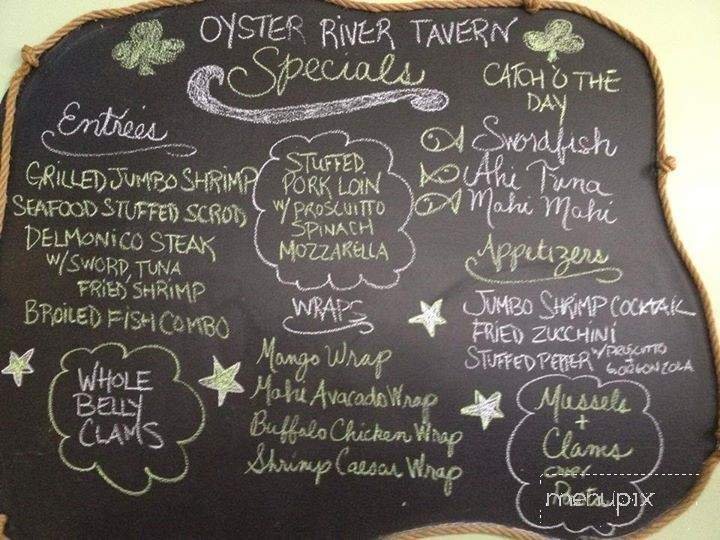 OYSTER RIVER TAVERN
Specials
Entrées
GRILLED JUMBO SHRIMP
SEAFOOD STUFFED SCROD
DELMONICO STEAK
W/SWORD, TUNA
FRIED SHRIMP
BROILED FISH COMBO
WHOLE
BELLY
CLAMS
STUFFED
PORK LOIN
W/ PROSCUITTO
SPINACH
MOZZARELLA
WRAPS
Mango Wrap
Mahi Avacado Wrap
Buffalo Chicken Wrap
Shrimp Caesar Wrap
CATCH O THE
DAY
Swordfish
Ahi Tuna
Mahi Mahi
Appetizers
JUMBO SHRIMP COCKTAIL
FRIED ZUCCHINI
STUFFED PEPPER W/ PRUSCUITTO
+ GORGONZOLA
Mussels
+
Clams
over
menupix